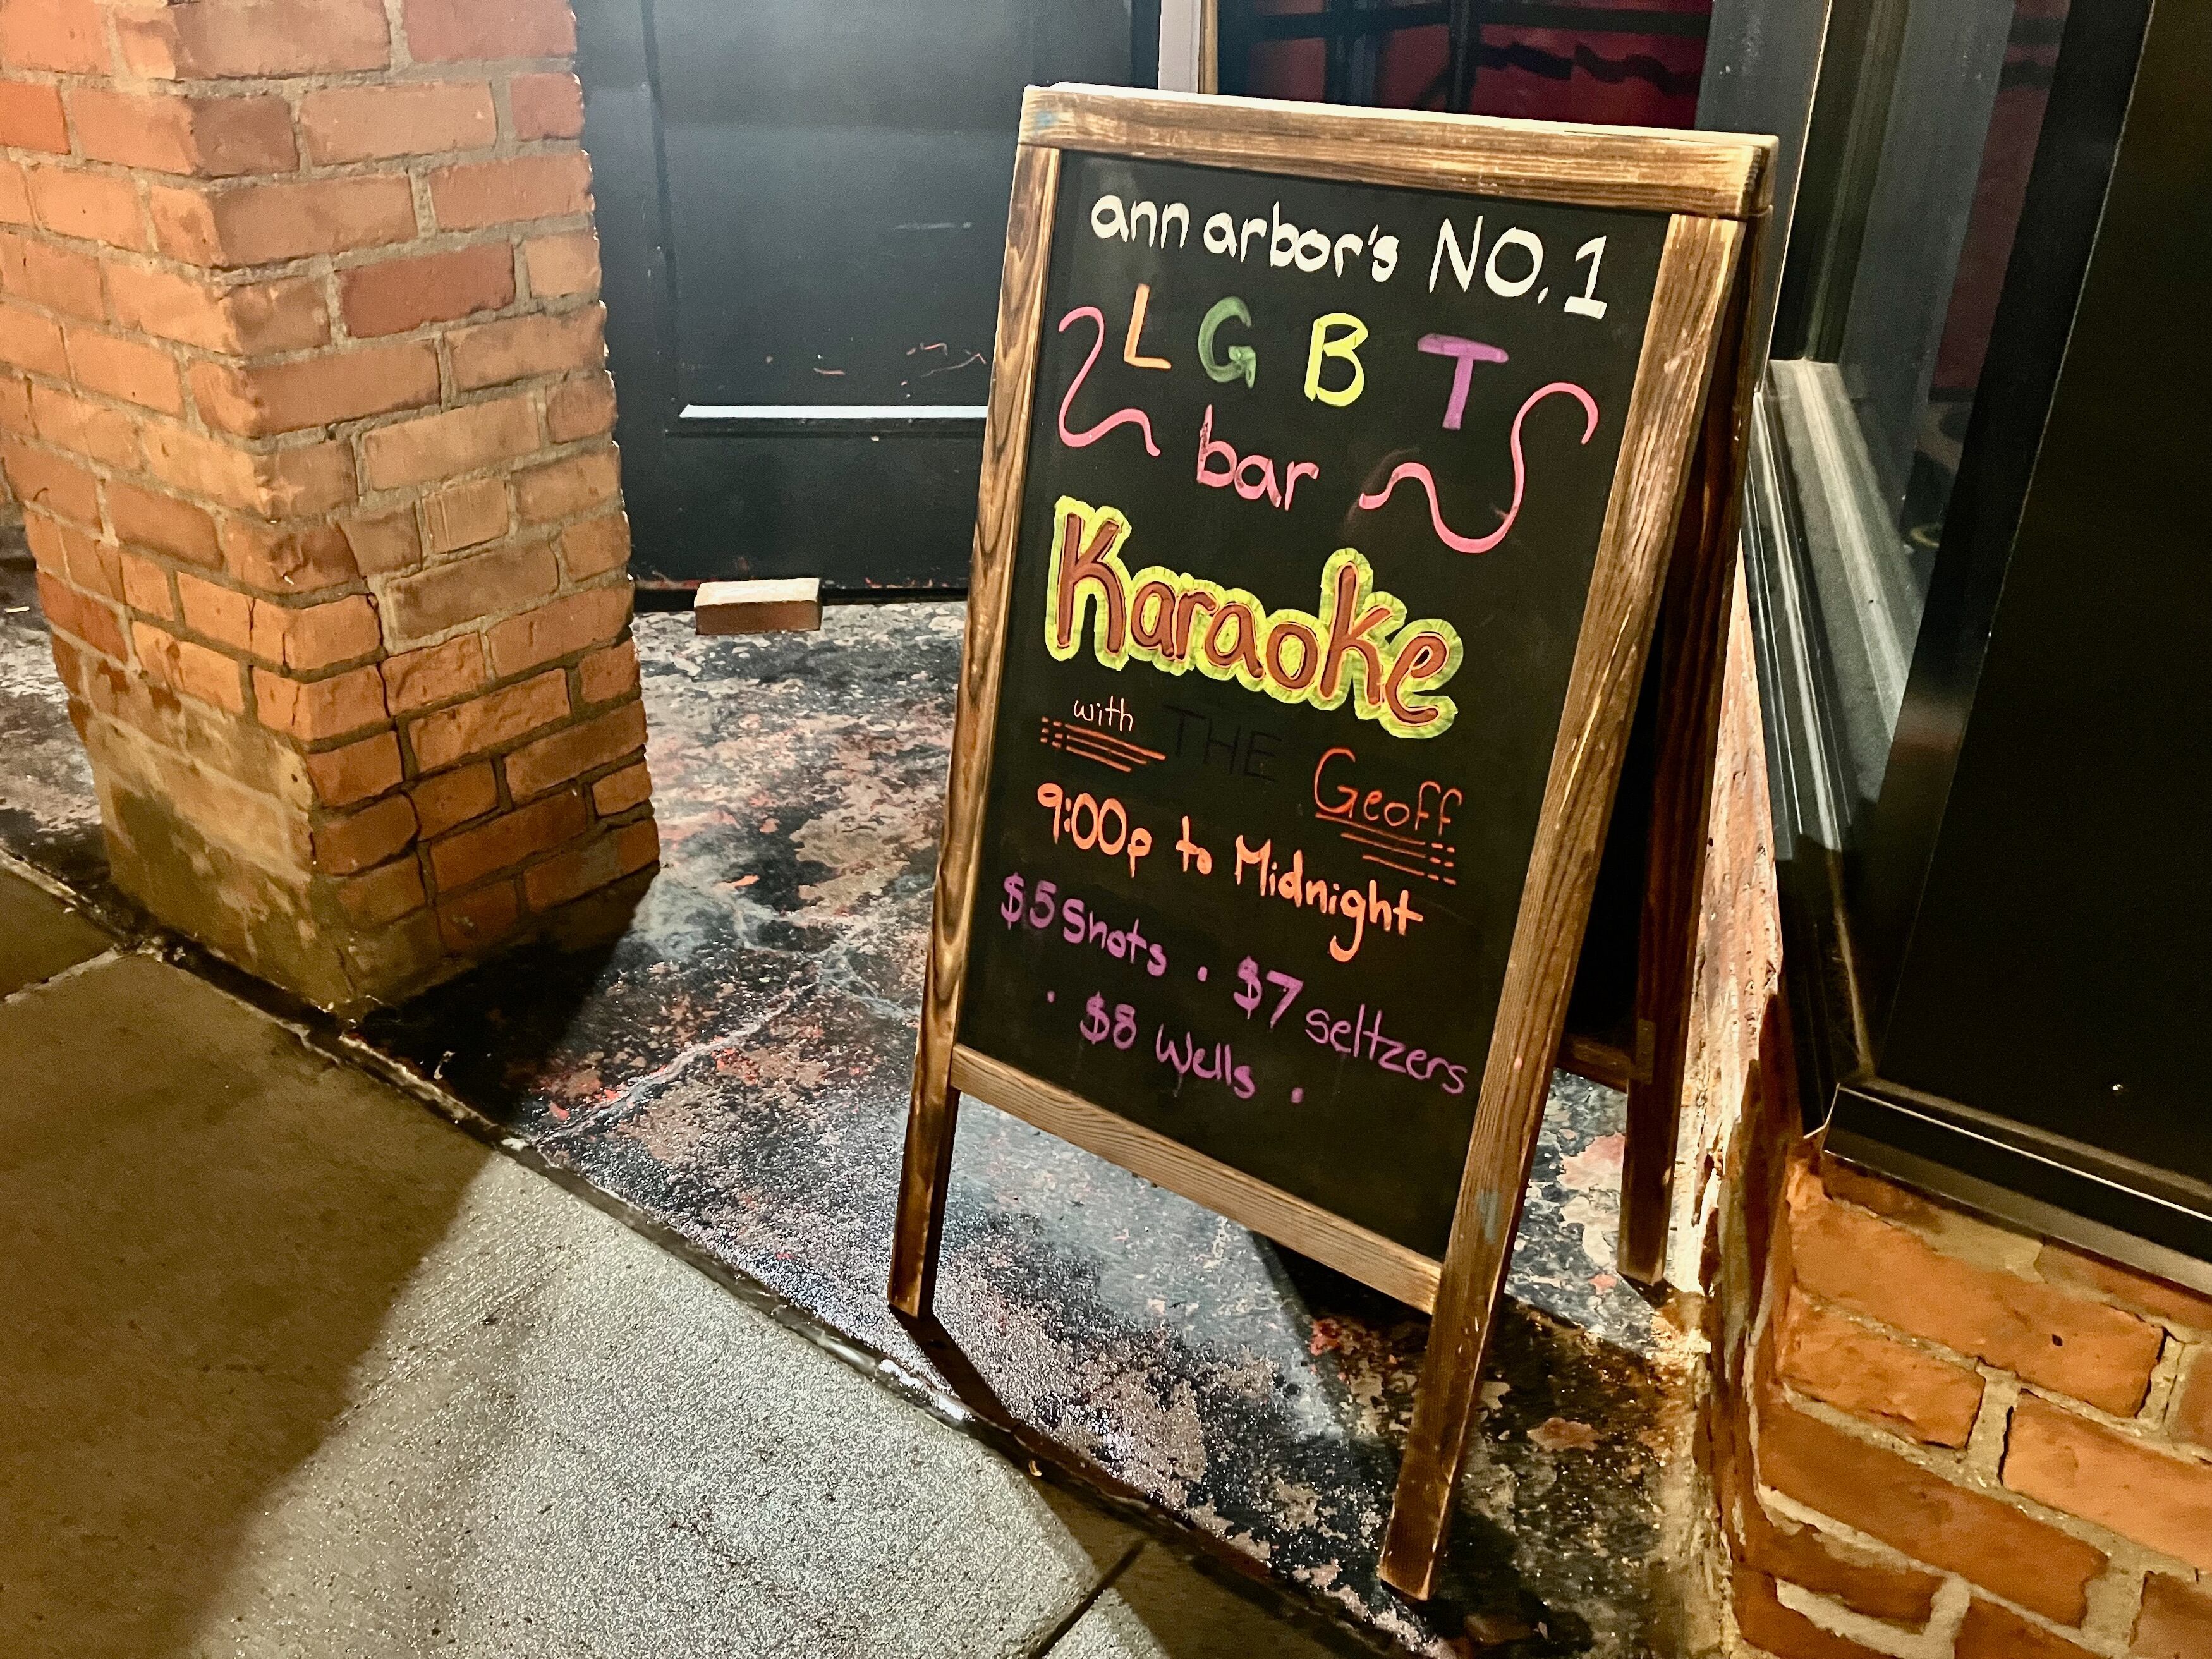 ann arbor's NO. 1
LGBT
bar
Karaoke
with THE Geoff
9:00p to Midnight
$5 Shots • $7 seltzers
• $8 Wells •